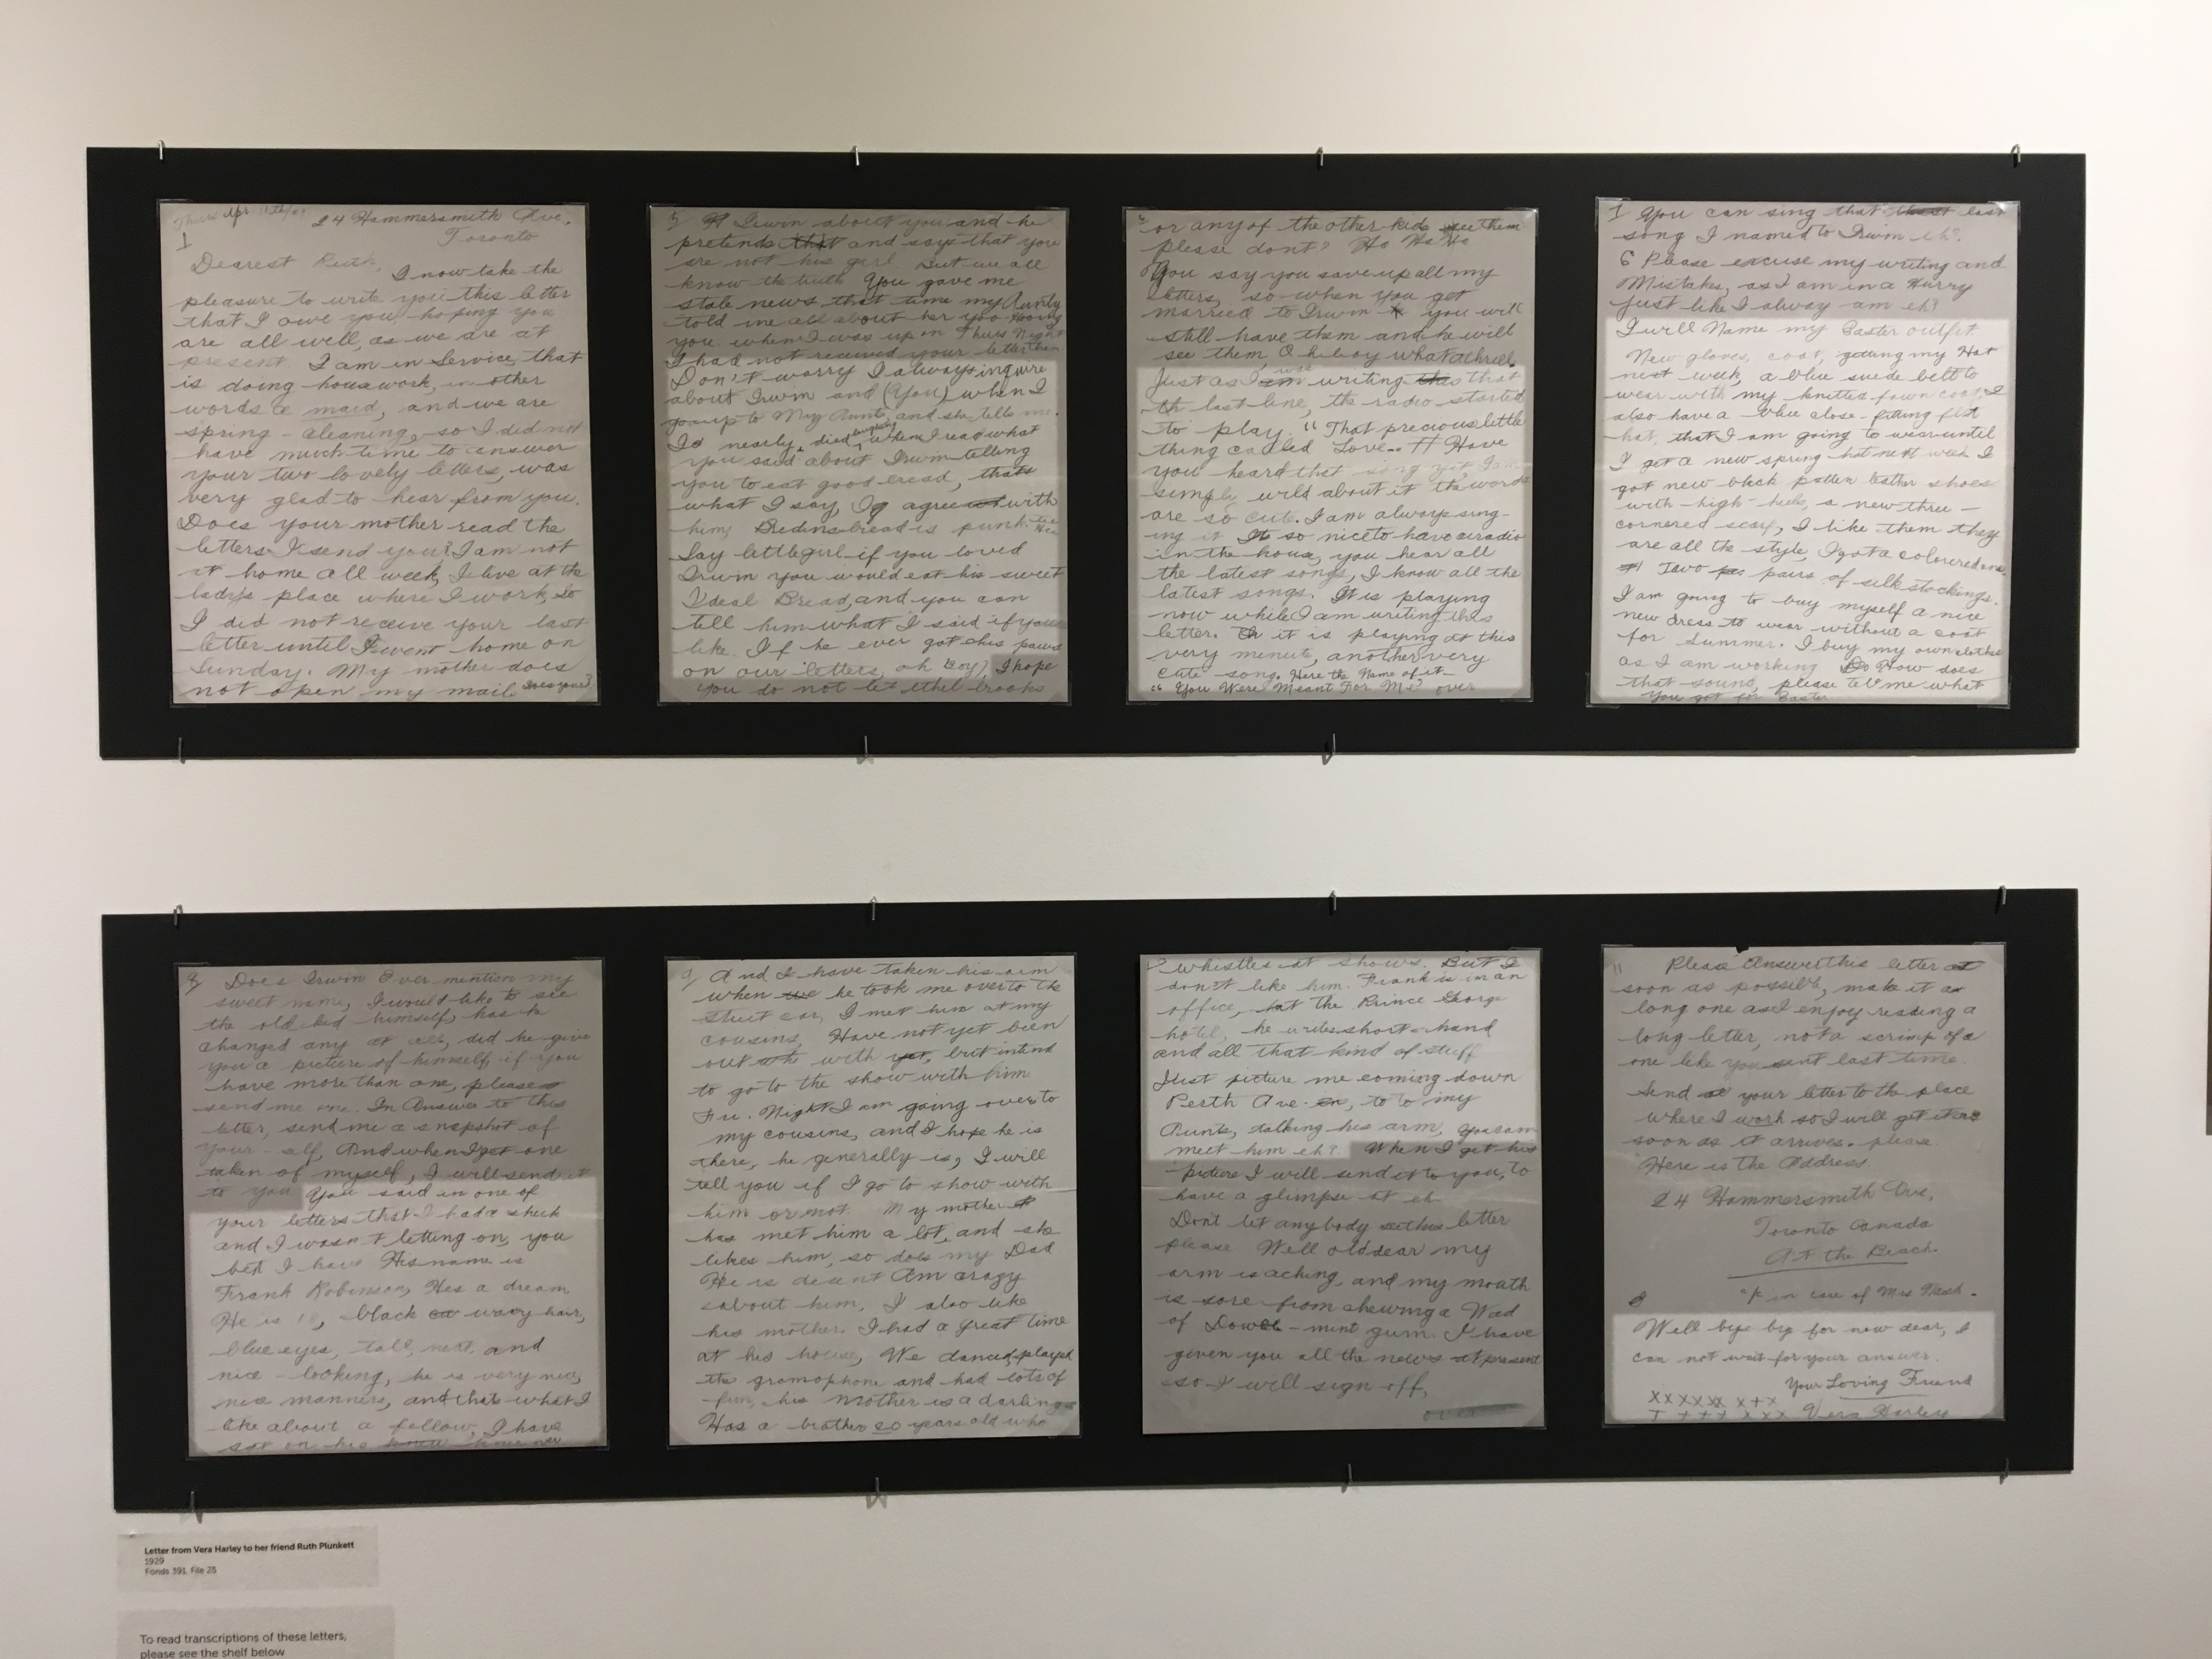 Thurs Apr 11th/29 24 Hammersmith Ave.
Toronto
1
Dearest Ruth,
I now take the
pleasure to write you this letter
that I owe you, hoping you
are all well, as we are at
present. I am in Service, that
is doing housework, in other
words a maid, and we are
spring-cleaning, so I did not
have much time to answer
your two lovely letters, was
very glad to hear from you.
Does your mother read the
letters I send you? I am not
at home all week, I live at the
lady's place where I work, so
I did not receive your last
letter until I went home on
Sunday. My mother does
not open my mail Does yours?
5 Irwin about you and he
pretends that and says that you
are not his girl. But we all
know the truth You gave me
stale news that time my Aunty
told me all about her
you when I was up on Thurs Night
I had not received your letter then
Don't worry I always inquire
about Irwin and (You) when I
go up to My Aunt, and she tells me.
I nearly died laughing when I read what
you said about Irwin telling
you to eat good bread, thats
what I say, I agree with
him, bread is punk
Say little girl if you loved
Irwin you would eat his sweet
Ideal Bread, and you can
tell him what I said if you
like. If he ever got his paws
on our letters, oh boy, I hope
you do not let ethel brooks
6 or any of the other kids see them
please dont? Ha Ha Ha
You say you save up all my
letters, so when you get
married to Irwin you will
still have them and he will
see them, Oh boy what a thrill.
Just as I was writing this that
last line, the radio started
to play. "That precious little
thing called Love." Have
you heard that song yet, I am
simply wild about it the words
are so cute. I am always sing-
ing it It so nice to have a radio
in the house, you hear all
the latest songs, I know all the
latest songs. It is playing
now while I am writing this
letter. it is playing at this
very minute, another very
cute song. Here the Name of it-
"You Were Meant For Me" over
7 You can sing that last
song I named to Irwin eh?
Please excuse my writing and
Mistakes, as I am in a Hurry
just like I alway am eh?
I will Name my Easter outfit.
New gloves, coat, getting my Hat
next week, a blue suede belt to
wear with my knitted fawn coat, I
also have a blue close-fitting felt
hat, that I am going to wear until
I get a new spring hat next week I
got new black patten leather shoes
with high-heels, a new three-
cornered scarf, I like them they
are all the style, I got a coloured one
Two pairs of silk stockings.
I am going to buy myself a nice
new dress to wear without a coat
for Summer. I buy my own clothes
as I am working How does
that sound, please tell me what
You got for Easter
8 Does Irwin Ever mention my
sweet name, I would like to see
the old kid himself, has he
changed any at all, did he give
you a picture of himself, if you
have more than one, please
send me one. In Answer to this
letter, send me a snapshot of
your-self, And when I get one
taken of myself, I will send it
to you You said in one of
your letters that I had a sheik
and I wasn't letting on, you
bet I have His name is
Frank Robinson, Hes a dream
He is , black wavy hair,
blue eyes, tall, neat, and
nice-looking, he is very nice,
nice manners, and thats what I
like about a fellow, I have
sat on his
9 And I have taken his arm
when he took me over to the
street car, I met him at my
cousins, Have not yet been
out with yet, but intend
to go to the show with him
Fri. Night I am going over to
my cousins, and I hope he is
there, he generally is, I will
tell you if I go to show with
him or not. My mother
has met him a lot, and she
likes him, so does my Dad
He is decent Am crazy
about him, I also like
his mother. I had a great time
at his house, We danced, played
the gramophone and had lots of
fun, his Mother is a darling
Has a brother 20 years old who
10 whistles at shows. But I
don't like him. Frank is in an
office, at the Prince George
hotel, he writes short-hand
and all that kind of stuff
Just picture me coming down
Perth Ave. to my
Aunts, taking his arm, You can
meet him eh? When I get his
picture I will send it to you, to
have a glimpse at eh
Dont let anybody see this letter
please Well old dear my
arm is aching, and my mouth
is sore from chewing a Wad
of -mint gum. I have
given you all the news at present
so I will sign off,
over
11 Please Answer this letter as
soon as possible, make it a
long one as I enjoy reading a
long letter, not a scrimp of a
one like you sent last time.
Send your letter to the place
where I work so I will get it as
soon as it arrives. please
Here is the Address
24 Hammersmith Ave,
Toronto Canada
At the Beach
in care of Mrs
Well bye bye for now dear, I
can not wait for your answer.
Your Loving Friend
Vera Harley
Letter from Vera Harley to her friend Ruth Plunkett
1929
Fonds 391, File 25
To read transcriptions of these letters,
please see the shelf below